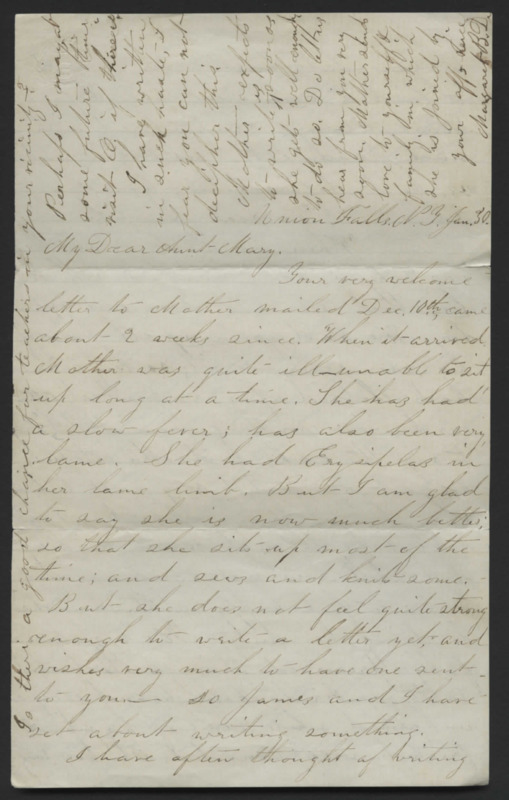 Union Falls, N.Y. Jan. 30.
My Dear Aunt Mary.
Your very welcome
letter to Mother mailed Dec. 10th, came
about 2 weeks since. When it arrived
Mother was quite ill—unable to sit
up long at a time. She has had
a slow fever; has also been very
lame. She had Erysipelas in
her lame limb. But I am glad
to say she is now much better,
so that she sits up most of the
time; and sews and knits some.
But she does not feel quite strong
enough to write a letter yet, and
wishes very much to have one sent
to you— so James and I have
set about writing something.
I have often thought of writing
Is there a good chance for teachers in your vicinity?
Perhaps I may at
some future time
visit
I have written
in such haste, I
fear you can not
decipher this
Mother expects
to write as soon as
she gets well enough
to do so. Do let us
hear from you very
soon. Mother sends
love to yourself &
family in which
she is joined by
your aff. niece
Margaret B. D.